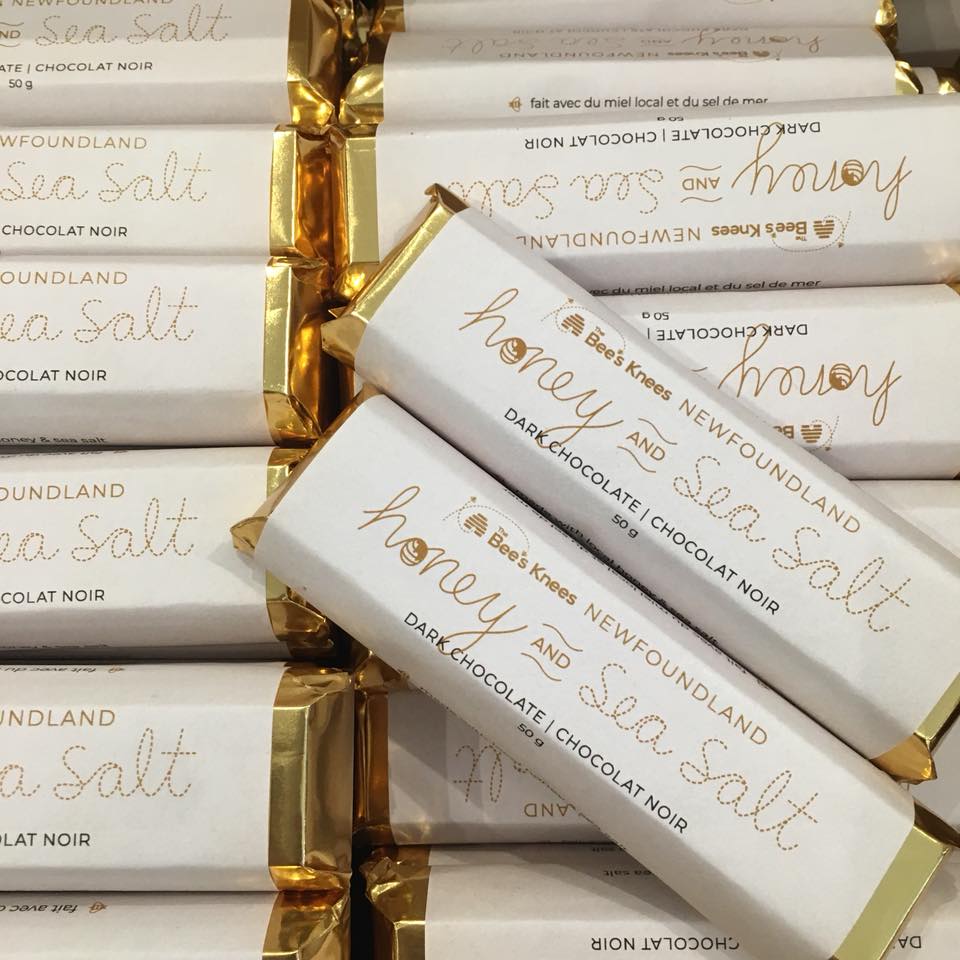 NEWFOUNDLAND
AND Sea Salt
ATE | CHOCOLAT NOIR
50 g
WFOUNDLAND
Sea Salt
CHOCOLAT NOIR
OUNDLAND
ea Salt
OCOLAT NOIR
honey & sea salt
OUNDLAND
ea Salt
COLAT NOIR
fait avec du
UNDLAND
a Salt
LAT NOIR
fait avec d
The Bee's Knees
honey AND Sea Salt
fait avec du miel local et du sel de mer
50 g
DARK CHOCOLATE | CHOCOLAT NOIR
honey AND Sea Salt
The Bee's Knees NEWFOUNDLAND
avec du miel local et du sel de mer
50 g
DARK CHOCOLATE |
honey
Bee's
The Bee's Knees NEWFOUNDLAND
honey AND Sea Salt
DARK CHOCOLATE | CHOCOLAT NOIR
50 g
The Bee's Knees NEWFOUNDLAND
honey AND Sea Salt
DARK CHOCOLATE | CHOCOLAT NOIR
50 g
Salt
LAND
sea salt
DA
CHOCOLAT NOIR